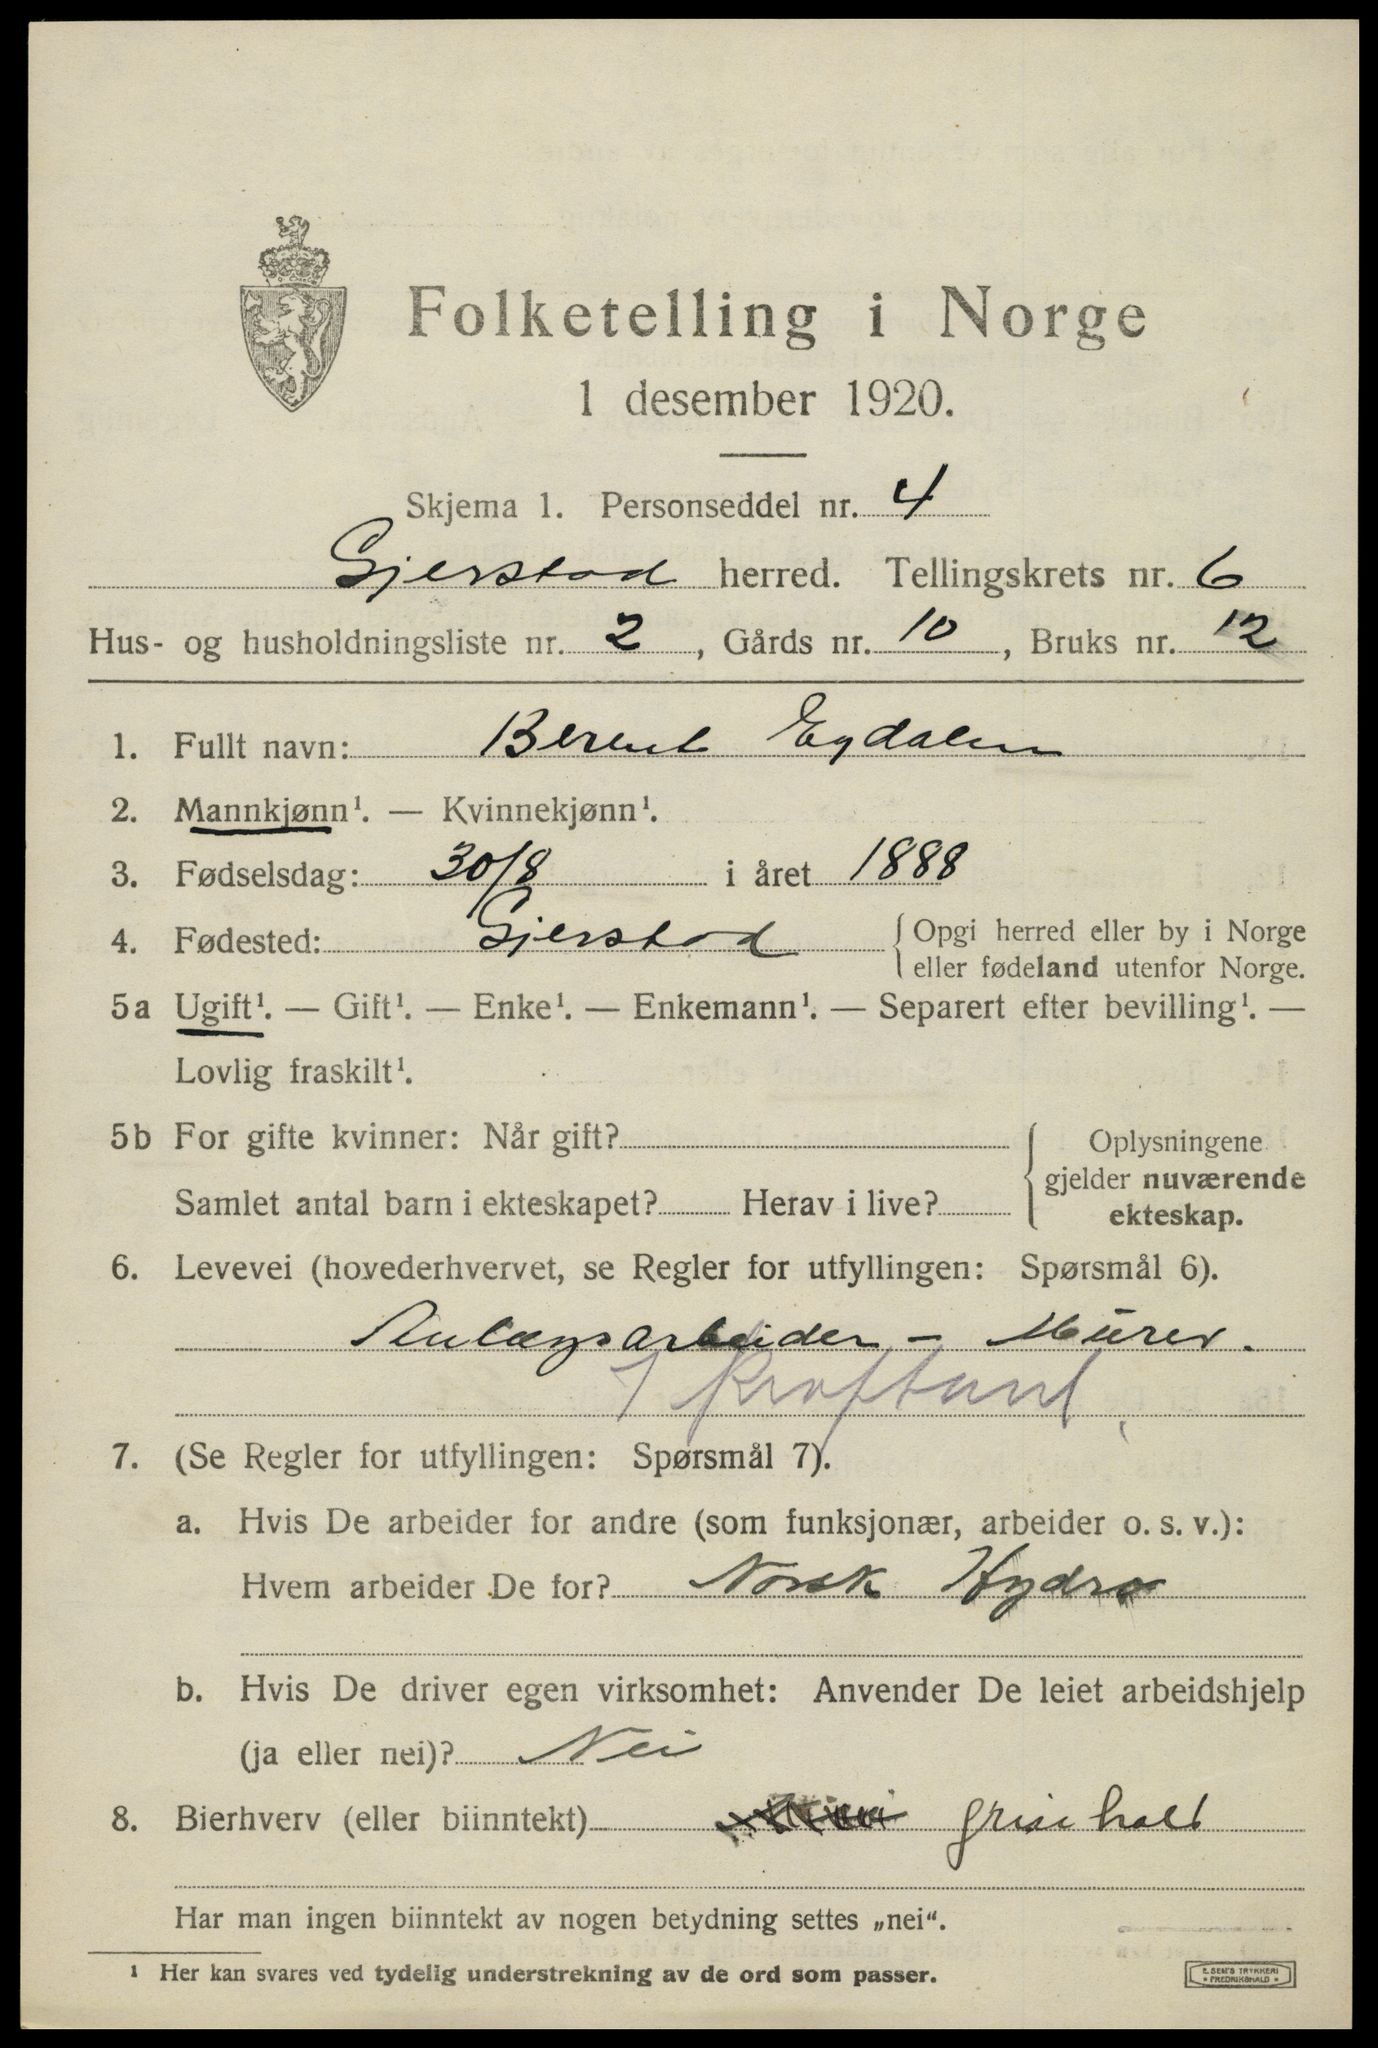 Folketelling i Norge
1 desember 1920.
Skjema 1. Personseddel nr. 4
Gjerstad herred. Tellingskrets nr. 6
Hus- og husholdningsliste nr. 2, Gårds nr. 10, Bruks nr. 12
1. Fullt navn: Berent Egdalen
2. Mannkjønn¹. — Kvinnekjønn¹.
3. Fødselsdag: 30/8 i året 1888
4. Fødested: Gjerstad {Opgi herred eller by i Norge
eller fødeland utenfor Norge.
5a Ugift¹. — Gift¹. — Enke¹. — Enkemann¹. — Separert efter bevilling¹. —
Lovlig fraskilt¹.
5b For gifte kvinner: Når gift? Oplysningene
gjelder nuværende
Samlet antal barn i ekteskapet? Herav i live? ekteskap.
6. Levevei (hovederhvervet, se Regler for utfyllingen: Spørsmål 6).
Anlægsarbeider - Murer.
7. (Se Regler for utfyllingen: Spørsmål 7).
a. Hvis De arbeider for andre (som funksjonær, arbeider o. s. v.):
Hvem arbeider De for? Norsk Hydro
b. Hvis De driver egen virksomhet: Anvender De leiet arbeidshjelp
(ja eller nei)? Nei
8. Bierhverv (eller biinntekt) grisehold
Har man ingen biinntekt av nogen betydning settes „nei".
¹ Her kan svares ved tydelig understrekning av de ord som passer.
E. SEM'S TRYKKERI
FREDRIKSHALD